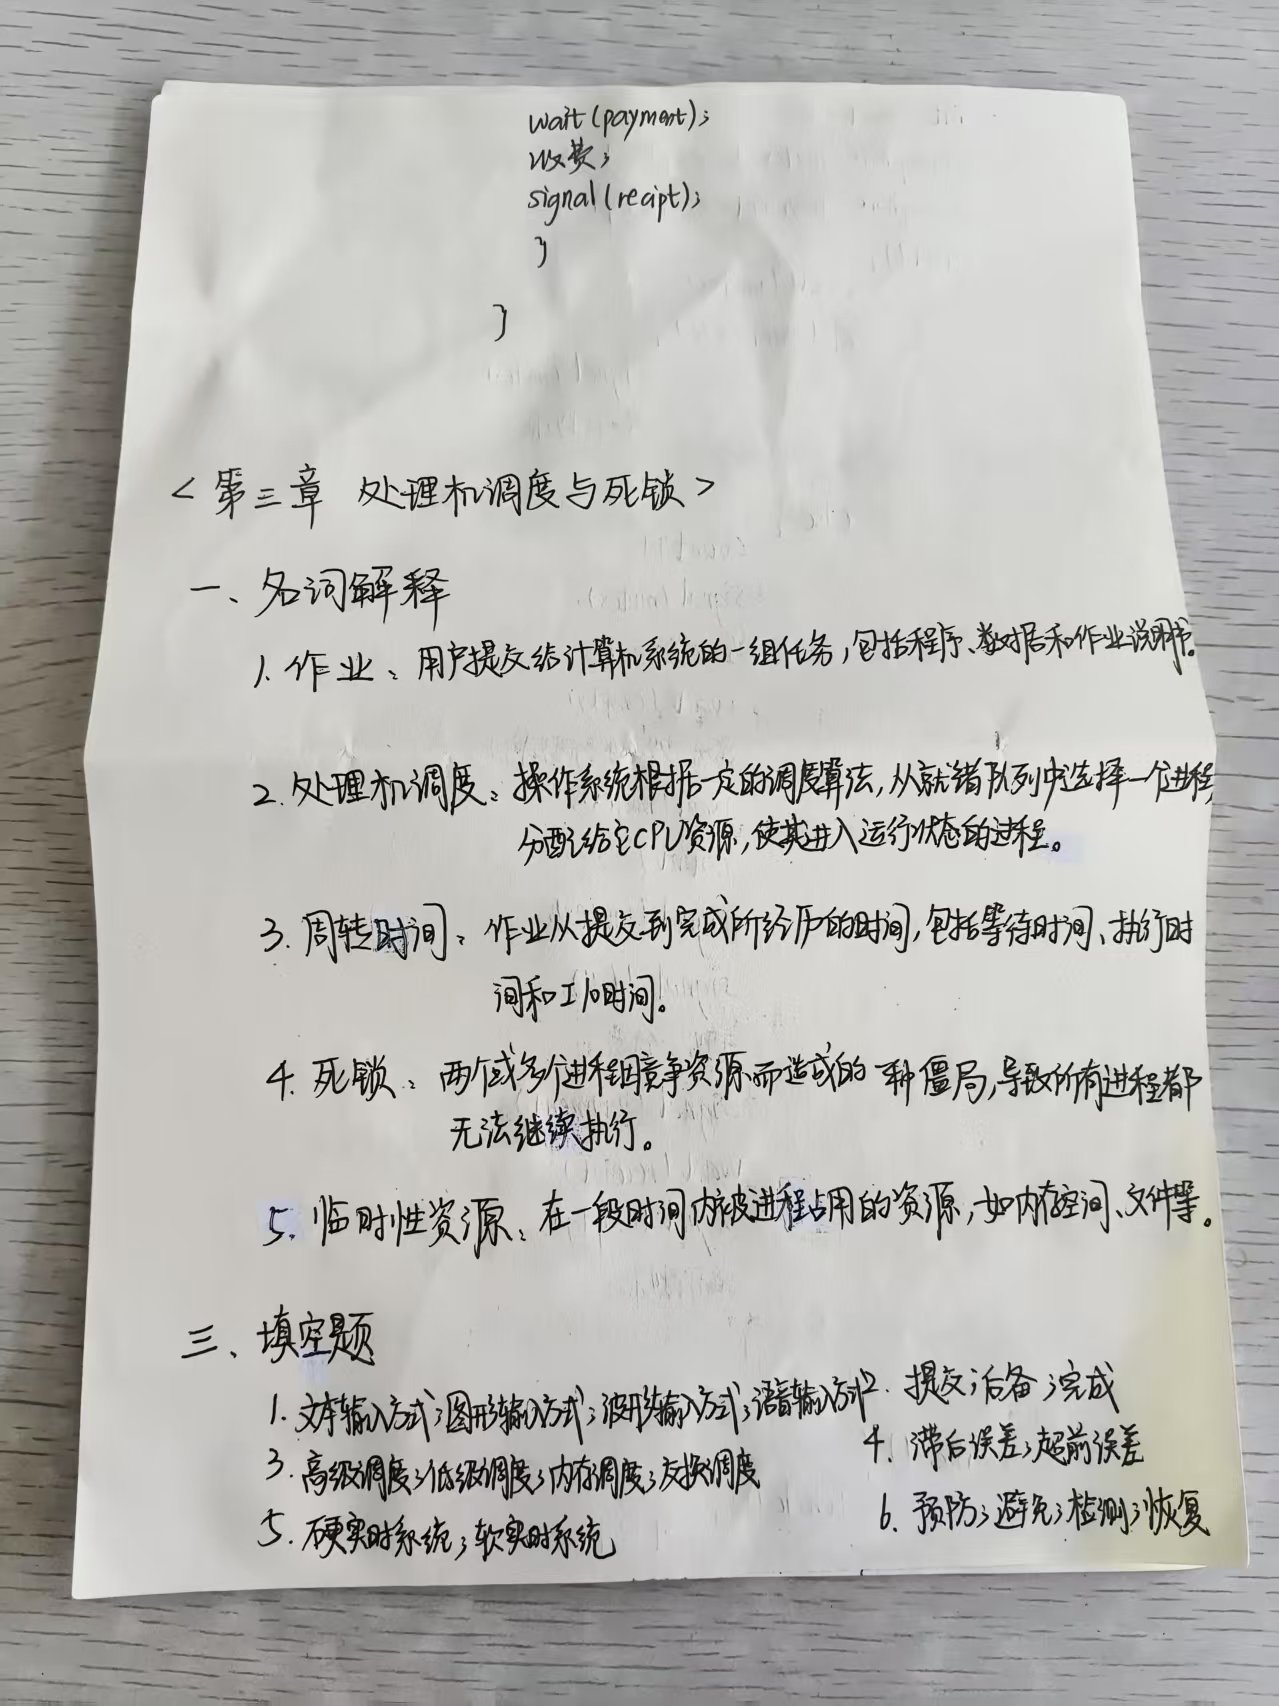 wait(payment);
收费;
signal(recipt);
}
}
<第三章 处理机调度与死锁>
一、名词解释
1. 作业：用户提交给计算机系统的一组任务，包括程序、数据和作业说明书。
2. 处理机调度：操作系统根据一定的调度算法，从就绪队列中选择一个进程，
分配给它CPU资源，使其进入运行状态的过程。
3. 周转时间：作业从提交到完成所经历的时间，包括等待时间、执行时
间和I/O时间。
4. 死锁：两个或多个进程因竞争资源而造成的一种僵局，导致所有进程都
无法继续执行。
5. 临时性资源：在一段时间内被进程占用的资源，如内存空间、文件等。
三、填空题
1. 文本输入方式；图形输入方式；波形输入方式；语音输入方式 2. 提交；后备；完成
3. 高级调度；低级调度；内存调度；交换调度 4. 滞后误差；超前误差
5. 硬实时系统；软实时系统 6. 预防；避免；检测；恢复